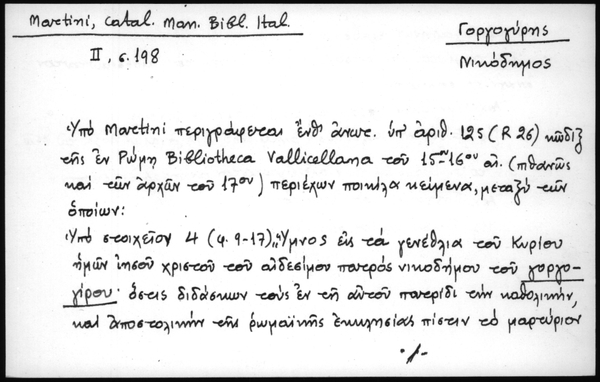 Martini, Catal. Man. Bibl. Ital.
Γοργογύρης
II, σ. 198
Νικόδημος
Ὑπό Martini περιγράφεται ἔνθ' ἀνωτ. ὑπ' ἀριθ. 125 (R 26) κῶδιξ
τῆς ἐν Ρώμῃ Bibliotheca Vallicellana τοῦ 15ου-16ου αἰ. (πιθανῶς
καί τῶν ἀρχῶν τοῦ 17ου) περιέχων ποικίλα κείμενα, μεταξύ τῶν
ὁποίων:
Ὑπό στοιχεῖον 4 (φ. 9-17) „Ὕμνος εἰς τά γενέθλια τοῦ Κυρίου
ἡμῶν ἰησοῦ χριστοῦ τοῦ αἰδεσίμου πατρός νικοδήμου τοῦ γοργο-
γίρου· ὅστις διδάσκων τούς ἐν τῇ αὐτοῦ πατρίδι τήν καθολικήν,
καί ἀποστολικήν τῆς ῥωμαϊκῆς ἐκκλησίας πίστιν τό μαρτύριον
./.